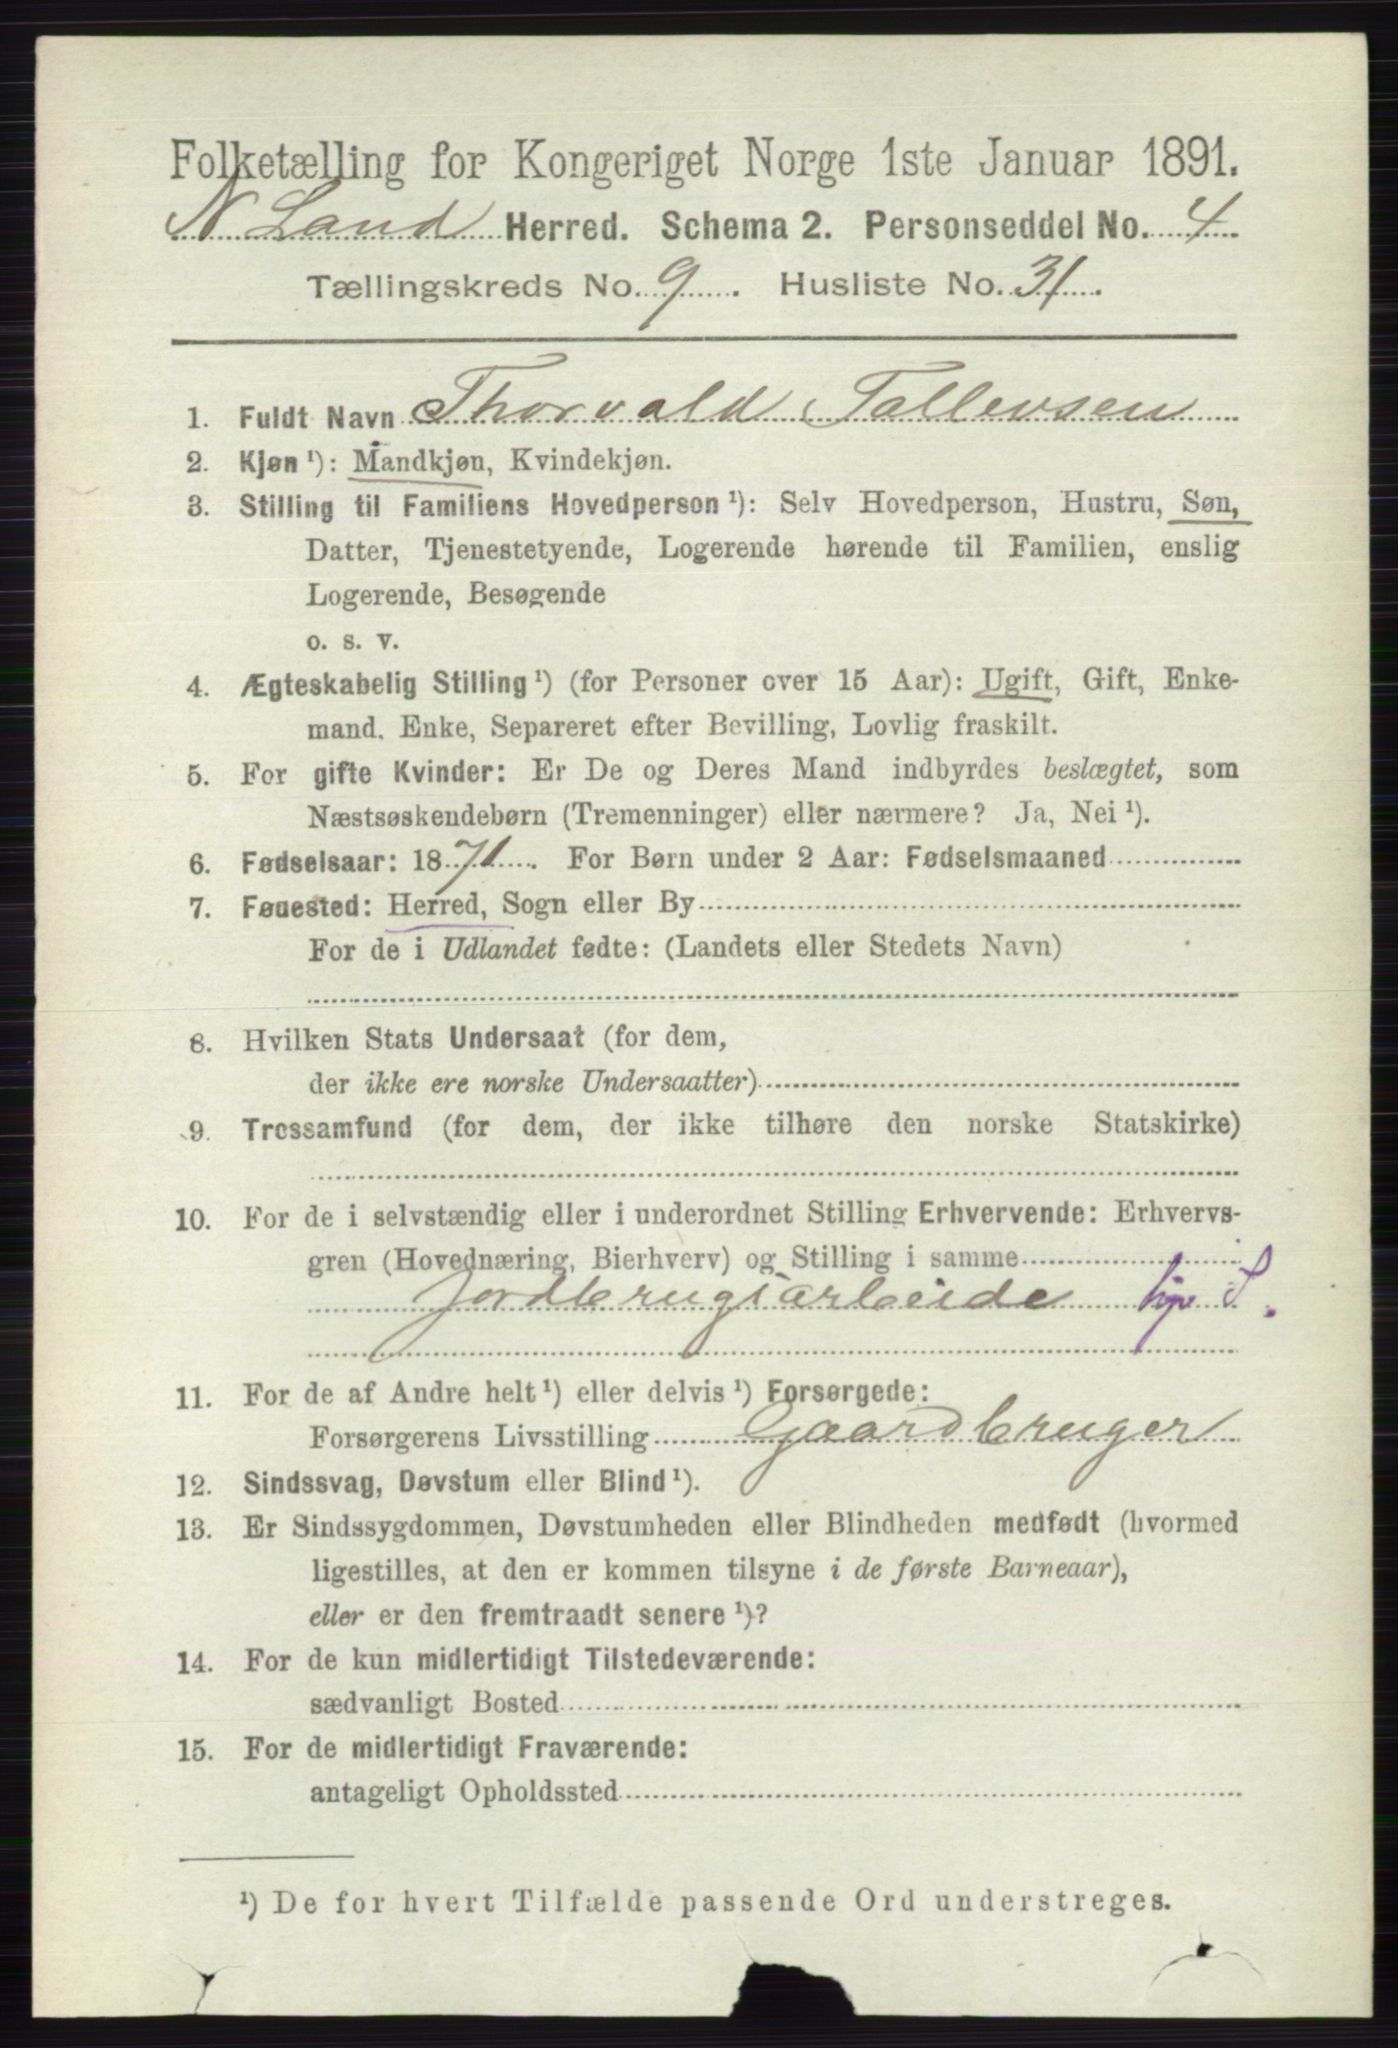 Folketælling for Kongeriget Norge 1ste Januar 1891.
N Land Herred. Schema 2. Personseddel No. 4
Tællingskreds No. 9. Husliste No. 31.
1. Fuldt Navn Thorvald Tollevsen
2. Kjøn ¹): Mandkjøn, Kvindekjøn.
3. Stilling til Familiens Hovedperson ¹): Selv Hovedperson, Hustru, Søn,
Datter, Tjenestetyende, Logerende hørende til Familien, enslig
Logerende, Besøgende
o. s. v.
4. Ægteskabelig Stilling ¹) (for Personer over 15 Aar): Ugift, Gift, Enke-
mand. Enke, Separeret efter Bevilling, Lovlig fraskilt.
5. For gifte Kvinder: Er De og Deres Mand indbyrdes beslægtet, som
Næstsøskendebørn (Tremenninger) eller nærmere? Ja, Nei ¹).
6. Fødselsaar: 1871. For Børn under 2 Aar: Fødselsmaaned
7. Føuested: Herred, Sogn eller By
For de i Udlandet fødte: (Landets eller Stedets Navn)
8. Hvilken Stats Undersaat (for dem,
der ikke ere norske Undersaatter)
9. Trossamfund (for dem, der ikke tilhøre den norske Statskirke)
10. For de i selvstændig eller i underordnet Stilling Erhvervende: Erhvervs-
gren (Hovednæring, Bierhverv) og Stilling i samme
Jordbrugsarbeide S.
11. For de af Andre helt ¹) eller delvis ¹) Forsørgede:
Forsørgerens Livsstilling Gaardbruger
12. Sindssvag, Døvstum eller Blind ¹).
13. Er Sindssygdommen, Døvstumheden eller Blindheden medfødt (hvormed
ligestilles, at den er kommen tilsyne i de første Barneaar),
eller er den fremtraadt senere ¹)?
14. For de kun midlertidigt Tilstedeværende:
sædvanligt Bosted
15. For de midlertidigt Fraværende:
antageligt Opholdssted
¹) De for hvert Tilfælde passende Ord understreges.